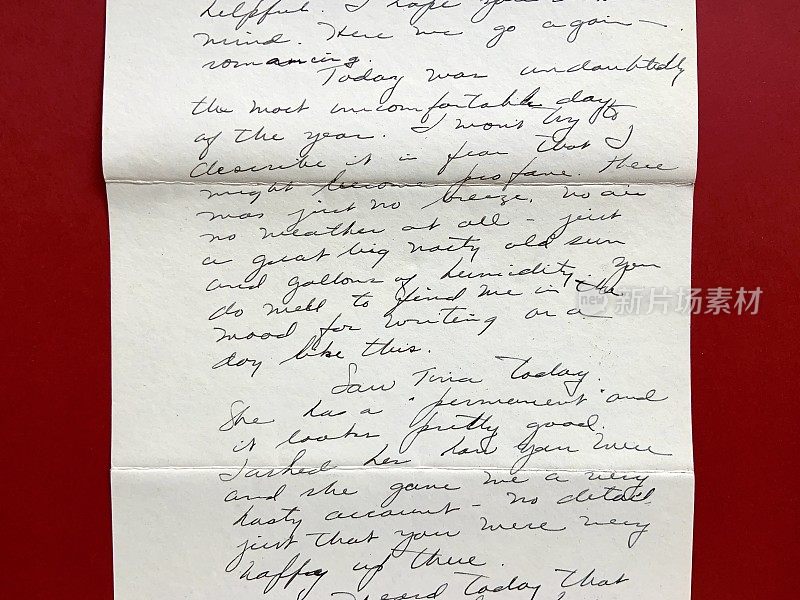 helpful. I hope you
mind. Here we go again —
romancing.
Today was undoubtedly
the most uncomfortable day
of the year. I won't try to
describe it in fear that I
might become profane. There
was just no breeze, no air
no weather at all – just
a great big nasty old sun
and gallons of humidity. You
do well to find me in the
mood for writing on a
day like this.
Saw Tina Today.
She has a "permenent" and
it looks pretty good.
I asked her how you were
and she gave me a very
hasty account – no detail
just that you were very
happy up there.
Heard Today that
new 新片场素材